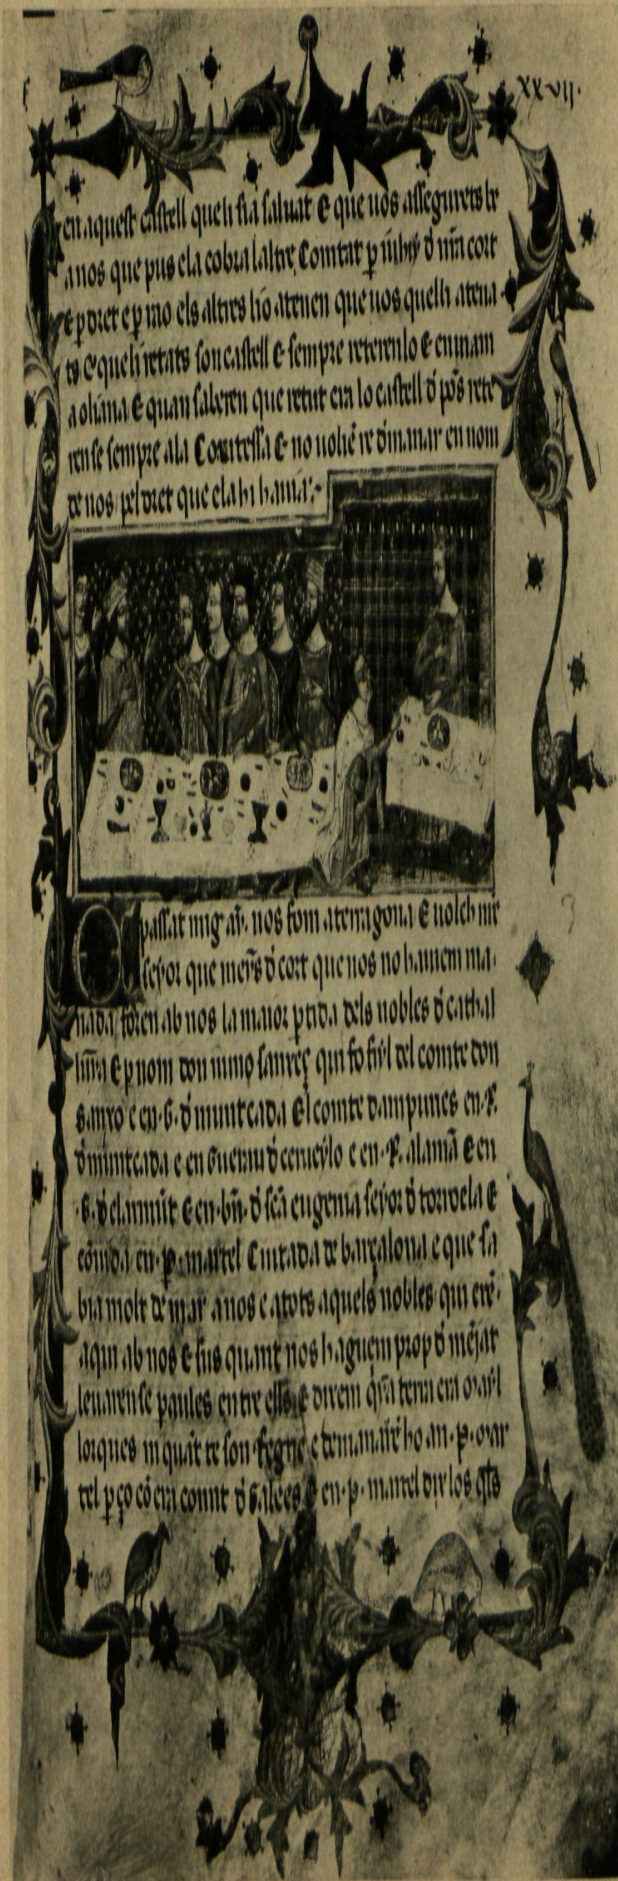 xxvij.
en aquest castell queli sia saluat E que uos assegurets be
a nos que pus ela cobra laltre Comtat p iuhiy d nra cort
E p dret e p mo els altres ho atenen que uos quelh atena
ts E queli retats son castell E sempre reterenlo E eninam
a oliana E quan saberen que retut era lo castell d pos rete
rense sempre ala Comtessa E no uolie re dmanar en nom
de nos pel dret que ela hi hauia
E passat mig an nos fom a terragona E uolch nre
seyor que meys d cort que nos no hauem ma
nada foren ab nos la maior ptida dels nobles d cathal
E p nom don nuno sanxes qui fo fiyl del comte don
sanxo e en .G. d muntcada El comte dampuries en .R.
d muntcada e en Guerau d cerueylo e en .R. alama E en
.G. d claramut E en .bn. d sca eugenia seyor d torroela E
en .p. martel Ciutada de barçalona e que sa
bia molt de mar a nos e a tots aquels nobles qui eren
aqui ab nos E sus quant nos haguem prop d meiat
leuarense paules entre ells E direm terra era mayl
lorques ni quat te son regne e demanaren ho an .p. mar
tel p ço co era comit d Galees E en .p. martel dix los